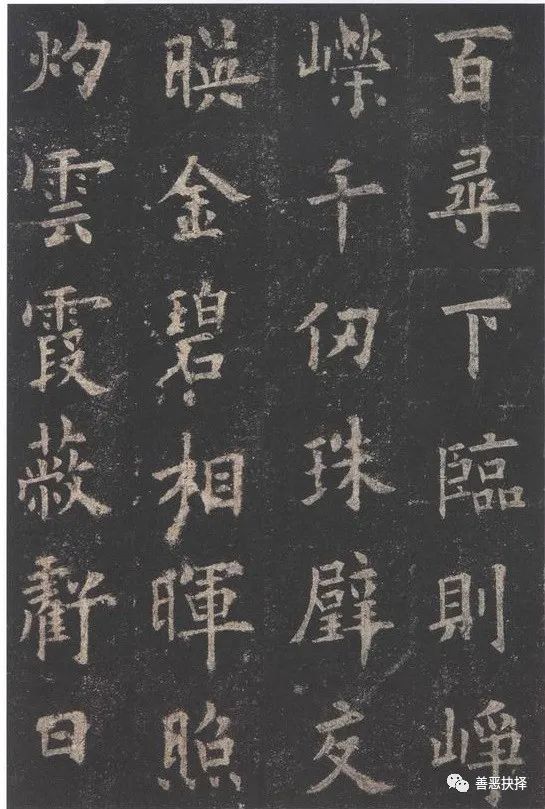 百尋下臨則崢
嶸千仞珠璧交
暎金碧相暉照
灼雲霞蔽虧日
善恶抉择